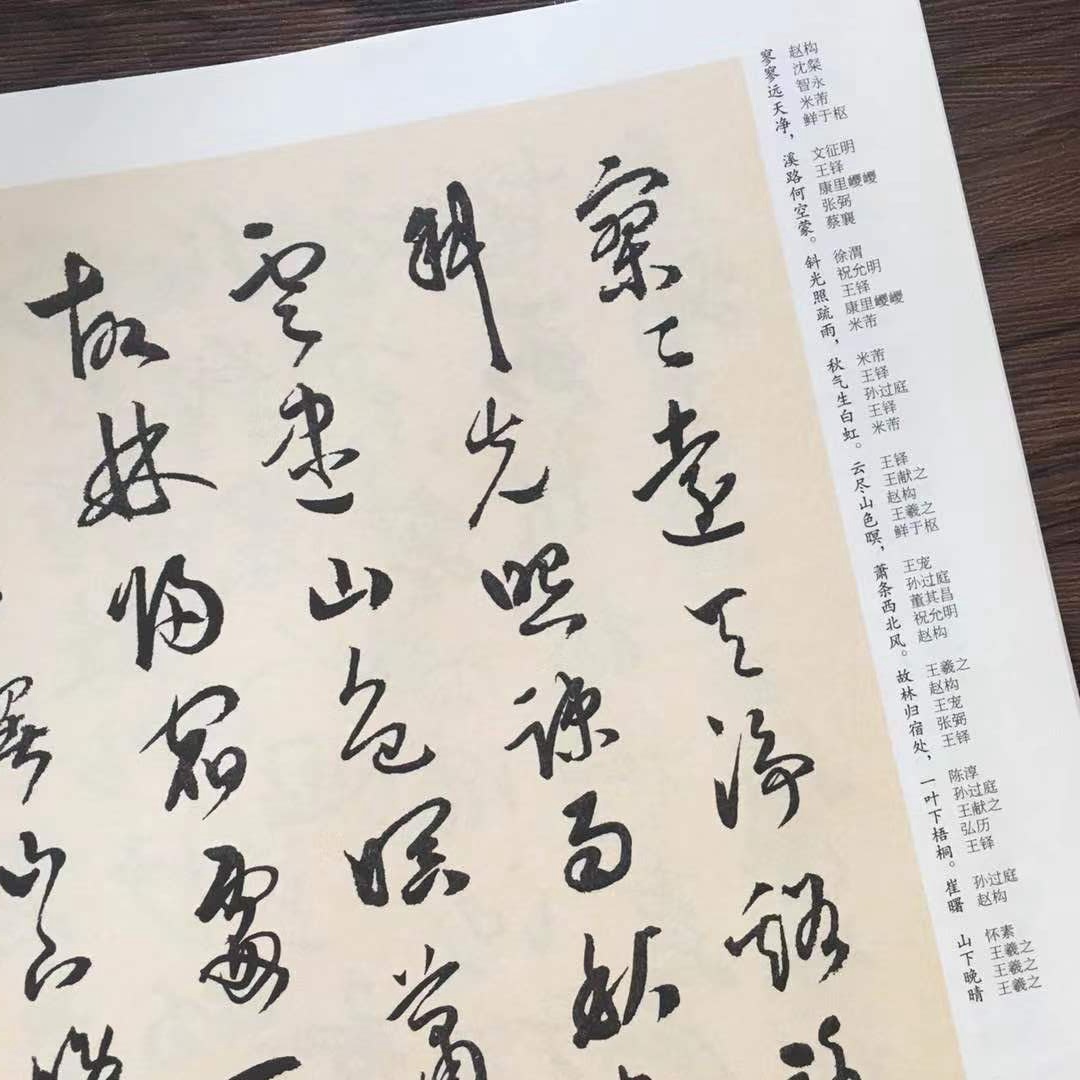 赵构
沈粲
智永
米芾
鲜于枢
文征明
王铎
康里巎巎
张弼
蔡襄
徐渭
祝允明
王铎
康里巎巎
米芾
米芾
王铎
孙过庭
王铎
米芾
王铎
王献之
赵构
王羲之
鲜于枢
王宠
孙过庭
董其昌
祝允明
赵构
王羲之
赵构
王宠
张弼
王铎
陈淳
孙过庭
王献之
弘历
王铎
孙过庭
赵构
怀素
王羲之
王羲之
王羲之
寥寥远天净，溪路何空蒙。斜光照疏雨，秋气生白虹。云尽山色暝，萧条西北风。故林归宿处，一叶下梧桐。崔曙 山下晚晴
寥〻遠天淨谿路
斜光照疎雨秋
雲盡山色暝蕭
故林歸宿處一
曙山下晚